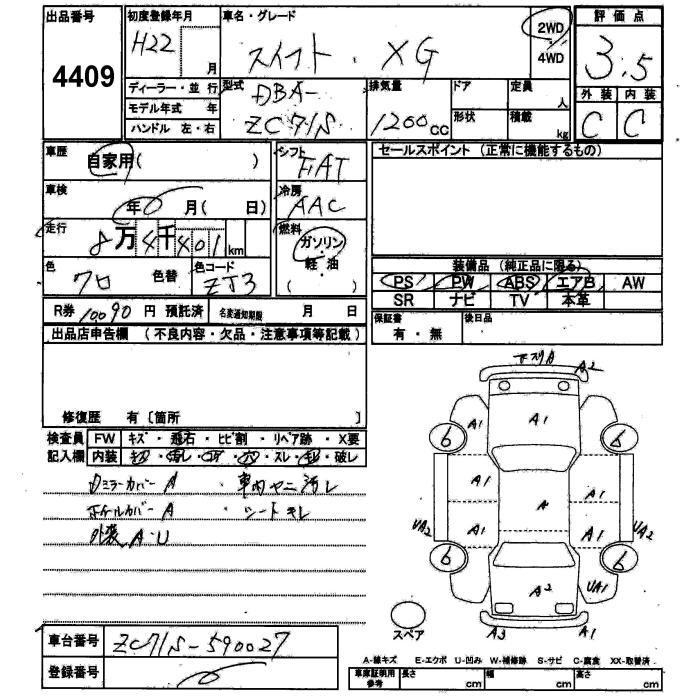 出品番号 初度登録年月 車名・グレード 2WD 評価点
4409 H22 月 スイフト・XG 4WD 3.5
ディーラー・並行 型式 DBA- 排気量 ドア 定員 人 外装 内装
モデル年式 年 ZC71S 1200cc 形状 積載 kg C C
ハンドル 左・右
車歴 自家用( ) シフト FAT セールスポイント (正常に機能するもの)
車検 年 月( 日) 冷房 AAC
走行 8万4千401km 燃料 ガソリン
軽・油
( )
色 クロ 色替 色コード ZJ3 装備品 (純正品に限る)
PS PW ABS エアB AW
SR ナビ TV 本革
R券 10090 円 預託済 名変通知期限 月 日 保証書 有・無 後日品
出品店申告欄 (不良内容・欠品・注意事項等記載)
修復歴 有〔箇所 〕
検査員 FW キズ・飛石・ヒビ割・リペア跡・X要
記入欄 内装 スレ 破レ
ミラーカバー A ・車内ヤニ汚レ
ホイールカバー A ・シートキレ
A・U
下スリA A2
A1 A1 A1
6 6
A1 A A1
UA2 A1 A1 UA2
6 6
A2 UA1
スペア A3 A1
車台番号 ZC71S-590027
登録番号
A-線キズ E-エクボ U-凹み W-補修跡 S-サビ C-腐食 XX-取替済
車庫証明用参考 長さ cm 幅 cm 高さ cm